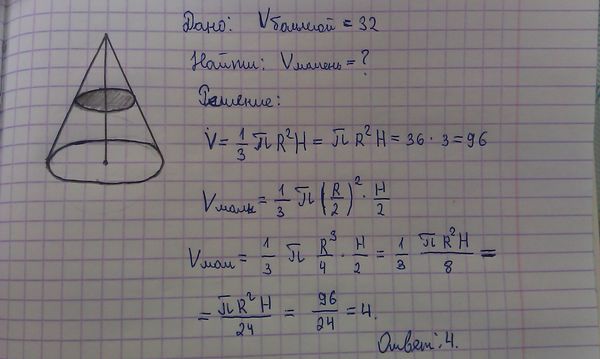 Дано: Vбольшой = 32
Найти: Vмалень = ?
Решение:
V = 1/3 π R² H = π R² H = 36 · 3 = 96
Vмал = 1/3 π (R/2)² · H/2
Vмал = 1/3 π R³/4 · H/2 = 1/3 π R² H/8 =
= π R² H/24 = 96/24 = 4.
Ответ: 4.